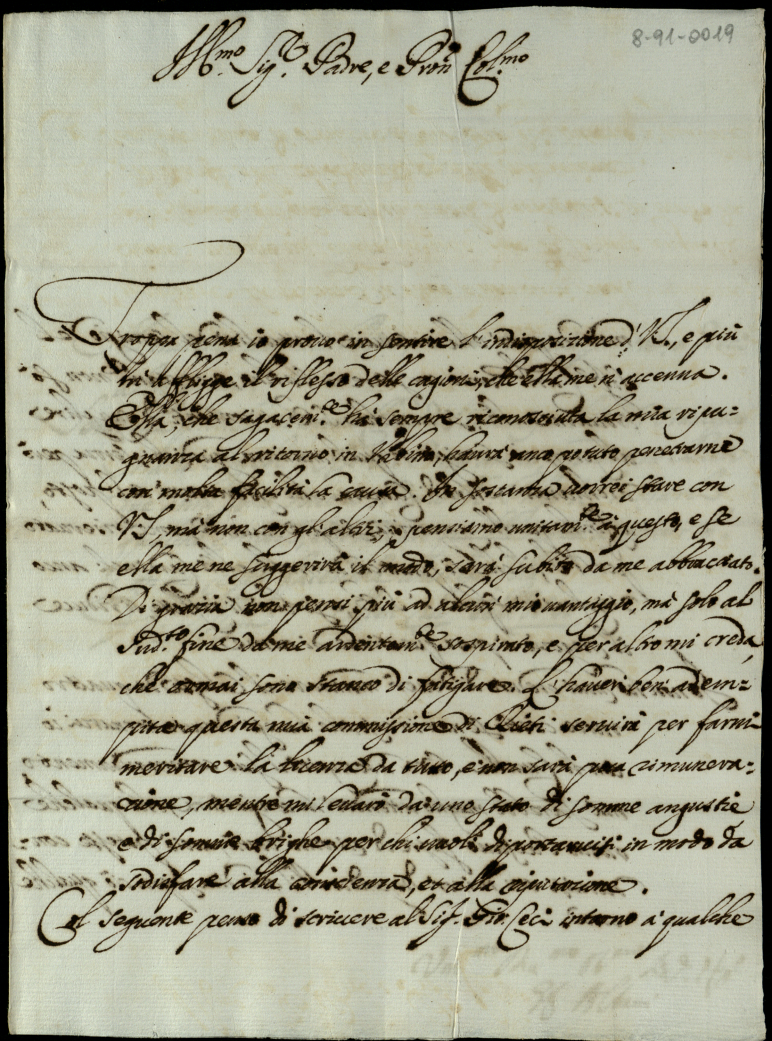 8-91-0019
Ill.mo Sig.r Padre, e Pron Col.mo
Troppa pena io provo in sentire l'indisposizione di VS., e più
m'affligge il riflesso delle cagioni, che ella me n'accenna.
Essa, che sagacem.te hà sempre riconosciuta la mia ripu-
gnanza al ritorno in Urbino, haurà anco potuto penetrarne
con molta facilità la causa. In sostanza vorrei stare con
VS, mà non con gl'altri, pensiamo unitam.te à questo, e se
ella me ne suggerirà il modo, sarà subito da me abbracciato.
Di grazia non pensi più ad alcun mio vantaggio, mà solo al
sud.to fine da me ardentem.te sospirato, e per altro mi creda,
che ormai sono stanco di fatigare. L'haver ben adem-
pita questa mia commissione di Chieti servirà per farmi
meritare la licenza da tutto, e non sarà poca rimunera-
zione, mentre mi levarà da uno stato di somme angustie
e di somme brighe per chi vuole diportarvisi in modo da
sodisfare alla coscienza, et alla riputazione.
Col seguente penso di scrivere al Sig. Gio: Ceci intorno à qualche